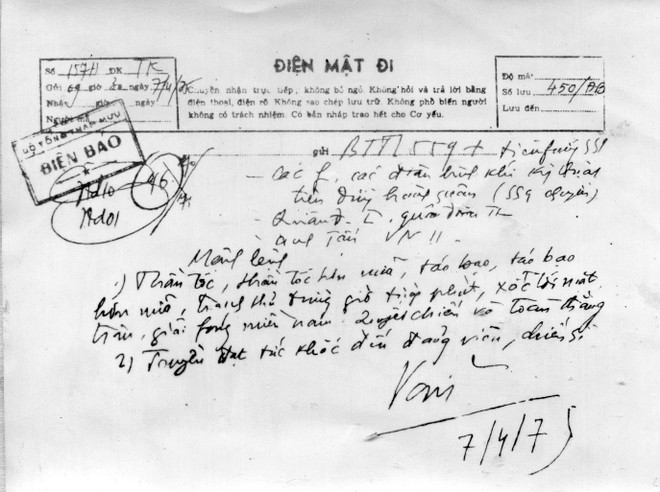 Số 157H ĐK TK
Gửi giờ ngày 7/4/75
Nhận giờ ngày
Người mã
ĐIỆN MẬT ĐI
Chuyển nhận trực tiếp, không bỏ ngỏ. Không hỏi và trả lời bằng
điện thoại, điện rõ. Không sao chép lưu trữ. Không phổ biến người
không có trách nhiệm. Có bản nháp trao hết cho Cơ yếu.
Độ mã
Số lưu 450/ĐB
Lưu đến
BỘ TỔNG THAM MƯU
ĐIỆN BÁO
46
gửi BTTL 559 +
- các f, các đơn
trên đường hành quân (559 chuyển)
- Quân đ I, quân đoàn
- Quang Tấn VN 11.
Mệnh lệnh
1) Thần tốc, thần tốc hơn nữa, táo bạo, táo bạo
hơn nữa, tranh thủ từng giờ từng phút, xốc tới mặt
trận, giải fóng miền nam. Quyết chiến và toàn thắng
2) Truyền đạt tức khắc đến đảng viên, chiến sĩ
Văn
7/4/75